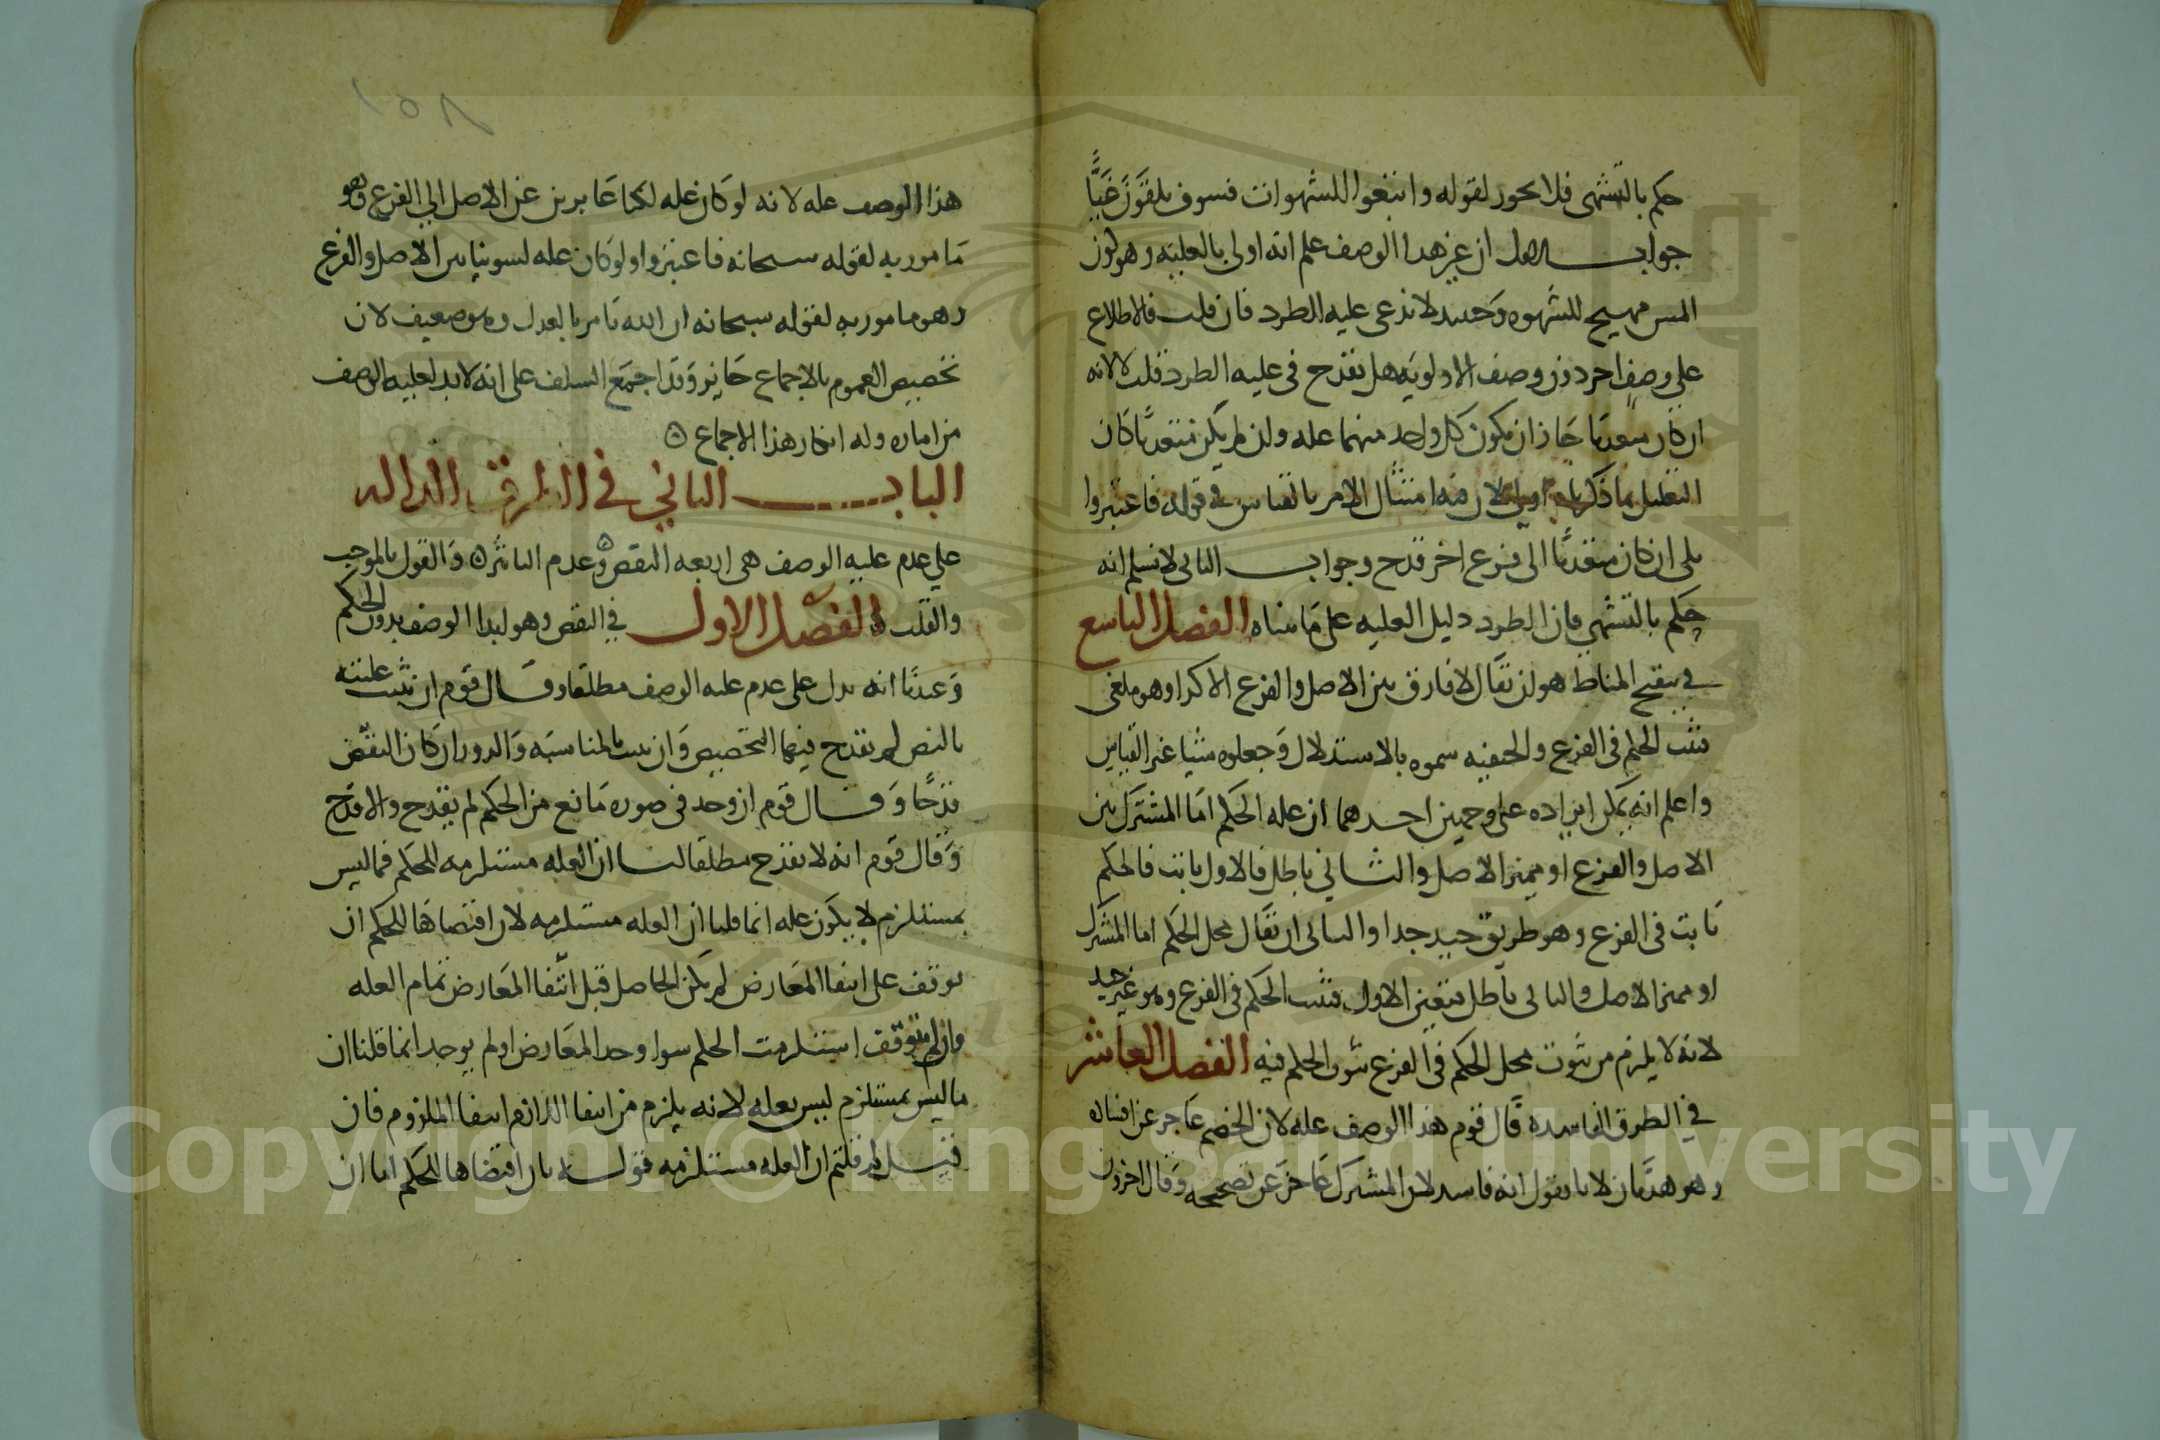 حكم بالتشهي فلا يحوز لقوله واتبعوا الشهوات فسوف يلقون غيا
جواب الاول ان عين هدا الوصف علم انه اولي بالعلية وهو كون
المس مهيج للشهوه وحينيد لا ندعي عليه الطرد فان قلت فالاطلاع
علي وصف اخر دون وصف الاولويه هل يقدح في عليه الطرد قلت لا لانه
ان كان متعديا جاز ان يكون كل واحد منهما عله ولن لم يكن متعديا كان
التعليل بما ذكرناه اولي لان فيه امتثال الامر بالقياس في قوله فاعتبروا
بلى ان كان متعديا الى فرع اخر قدح وجواب الثاني لا نسلم انه
حكم بالتشهي فان الطرد دليل العليه على ما بيناه الفصل التاسع
في تنقيح المناط هو لن يقال لا فارق بين الاصل والفرع الا كدا وهو ملغى
فثبت الحكم في الفرع والحنفيه سموه بالاستدلال وجعلوه شيا غير القياس
واعلم انه يمكن ايراده على وجهين احدهما ان عله الحكم اما المشترك بين
الاصل والفرع او مميز الاصل والثاني باطل فالاول ثابت فالحكم
ثابت في الفرع وهو طريق جيد جدا والثاني ان يقال محل الحكم اما المشترك
او مميز الاصل والثاني باطل فتعين الاول فثبت الحكم في الفرع وهو غير جيد
لانه لا يلزم من ثبوت محل الحكم في الفرع ثبوت الحكم فيه الفصل العاشر
في الطرق الفاسده قال قوم هذا الوصف عله لان الخصم عاجز عن افساده
وهو هذيان لانا نقول انه فاسد لان المشترك عاجز عن تصحيحه وقال اخرون
١٥٨
هذا الوصف عله لانه لو كان عله لكنا عابرين عن الاصل الي الفرع وهو
مامور به لقوله سبحانه فاعتبروا ولو كان عله لسوينا بين الاصل والفرع
وهو مامور به لقوله سبحانه ان الله يامر بالعدل وهو ضعيف لان
تخصيص العموم بالاجماع جايز وقد اجمع السلف على انه لا بد لعليه الوصف
من اماره وله انكار هذا الاجماع
الباب الثاني في الطرق الداله
علي عدم عليه الوصف هي اربعه النقض وعدم التاثير والقول بالموجب
والقلب الفصل الاول في النقض وهو ابدا الوصف بدون الحكم
وعندنا انه يدل على عدم عليه الوصف مطلقا وقال قوم ان ثبت عليته
بالنص لم يقدح فيها التخصيص وان ثبت بالمناسبه والدوران كان النقض
قدحا وقال قوم ان وجد في صوره مانع من الحكم لم يقدح والا قدح
وقال قوم انه لا يقدح مطلقا لنا ان العله مستلزمه للحكم فما ليس
بمستلزم لا يكون عله انما قلنا ان العله مستلزمه لان اقتضاها للحكم ان
توقف على انتفا المعارض لم يكن الحاصل قبل انتفا المعارض تمام العله
وان لم يتوقف استلزمت الحكم سوا وجد المعارض او لم يوجد انما قلنا ان
ما ليس بمستلزم ليس بعله لانه يلزم من انتفا اللازم انتفا الملزوم فان
قيل لم قلتم ان العله مستلزمه قوله بان اقتضاها للحكم اما ان
Copyright © King Saud University